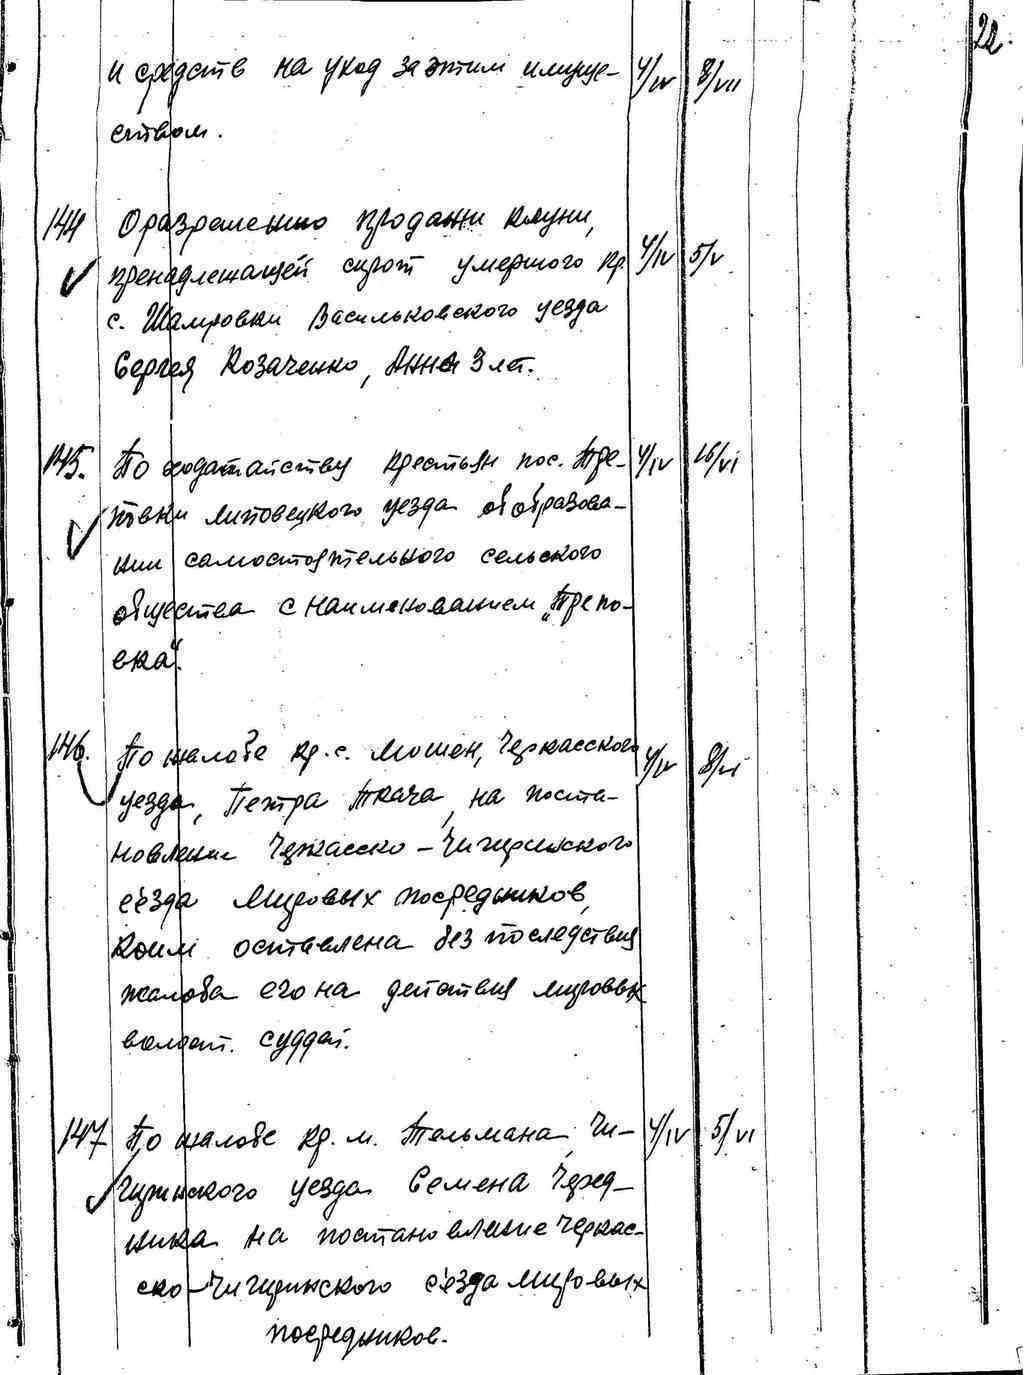 22.
и средств на уход за этим имуще- 4/IV 8/VII
ством.
144 О разрешению продажи клуни,
пренадлежащей сирот умершого кр. 4/IV 5/V
с. Шамровки Васильковского уезда
Сергея Козаченко, Анна 3 лет.
145. По ходатайству крестьян пос. Тре- 4/IV 16/VI
повки Липовецкого уезда об образова-
нии самостоятельного сельского
общества с наименованием „Трепо-
вка".
146. По жалобе кр. с. Мошен, Черкасского 4/IV 8/VI
уезда, Петра Ткача, на поста-
новление Черкасско-Чигиринского
с'езда Мировых посредников,
коим оставлена без последствия
жалоба его на действия мировых
волост. суддей.
147 По жалобе кр. м. Тельмана, Чи- 4/IV 5/VI
гиринского уезда Семена Черед-
ника на постановление Черкас-
ско-Чигиринского с'езда мировых
посредников.